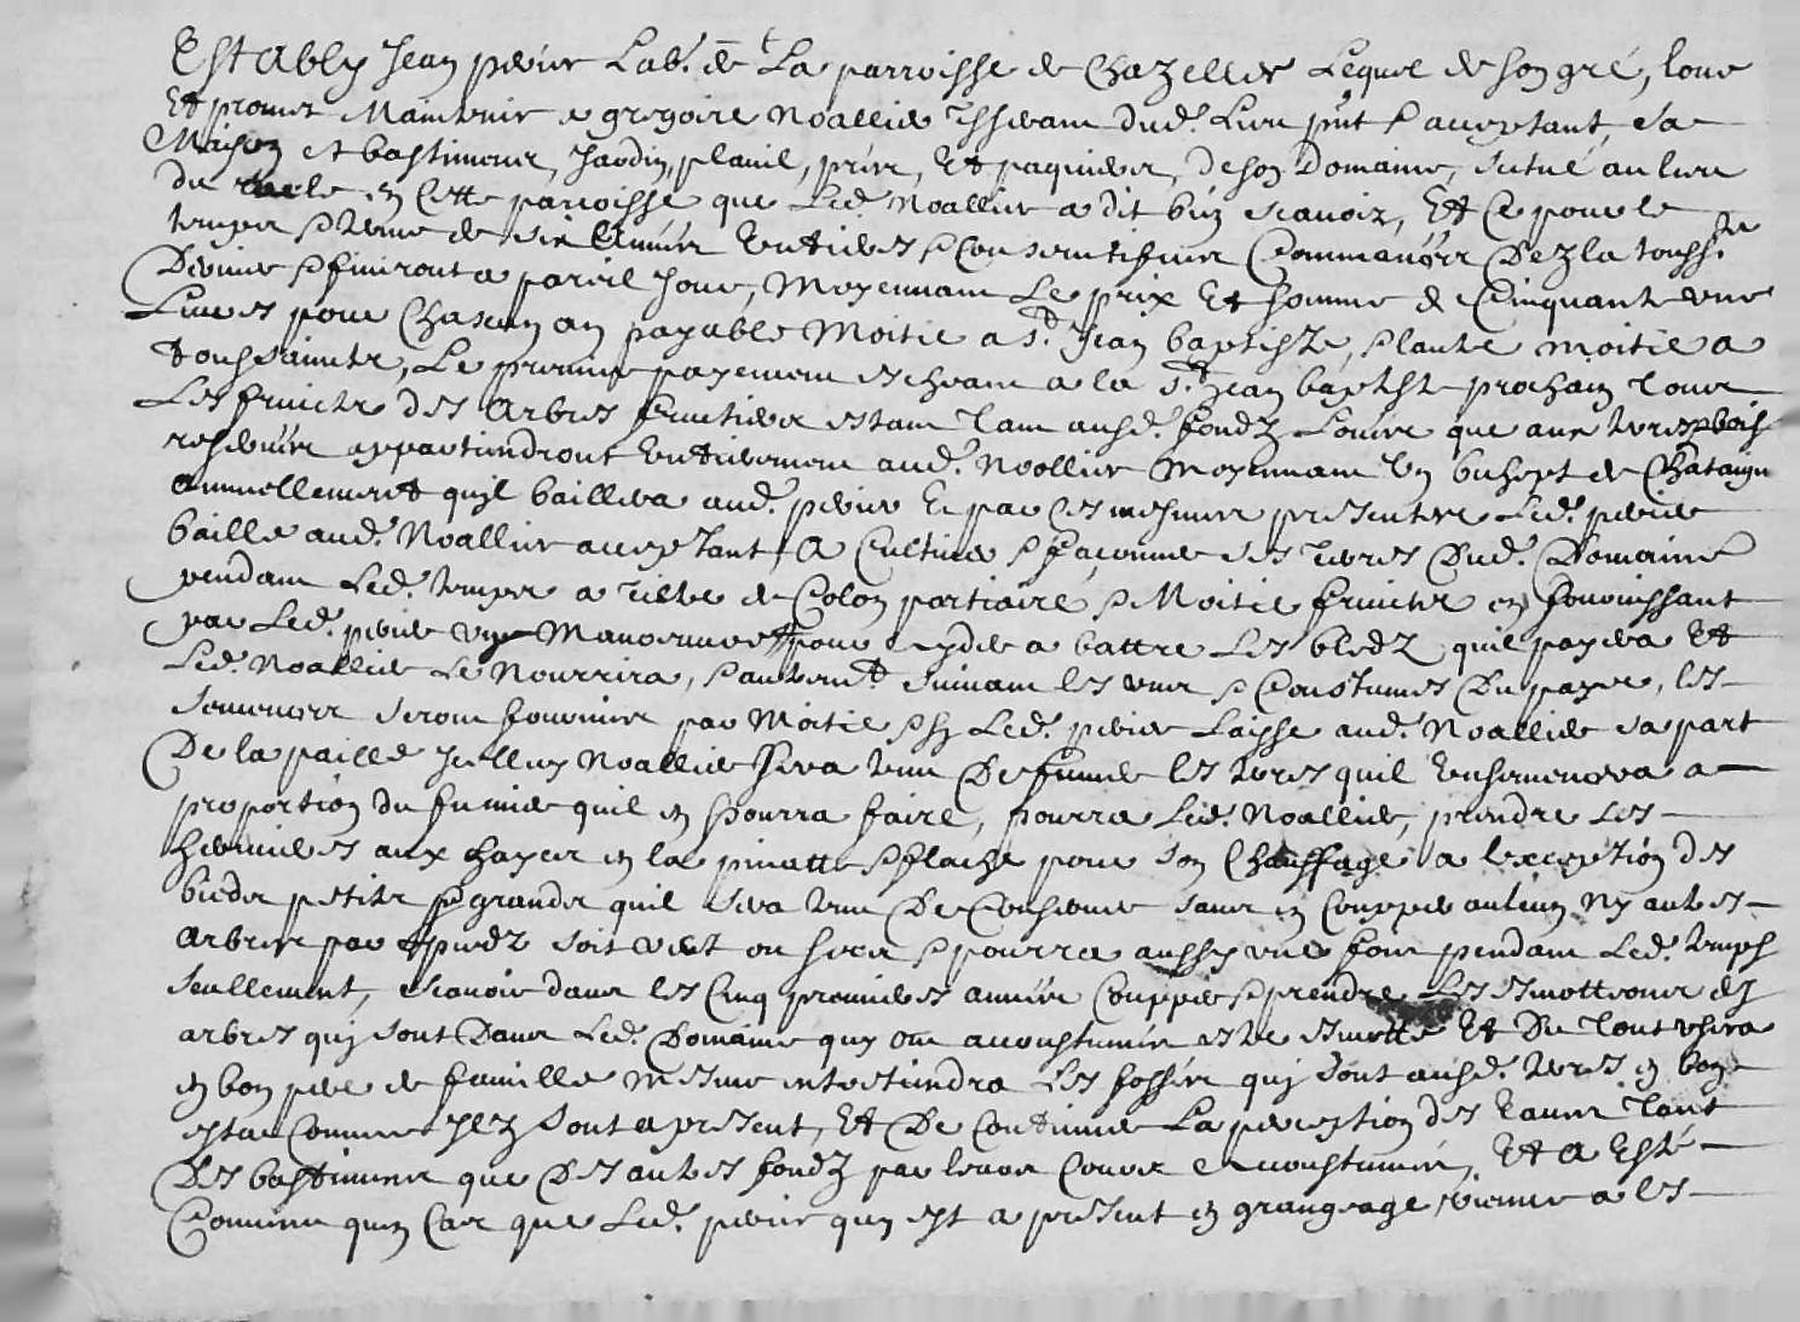 Establý Jean perier Lab.r de La parroisse de Chazelles Lequel de son gré, loue
Et promet Maintenir a gregoire Noallier Issevant dud. Lieu pnt & acceptant, sa
Maison et bastiment, Jardin, planil, prés, Et paquiers, de son Domaine, scitué au lieu
du en Cette parroisse que Led. Noallier a dit bien scauoir, Et Ce pour le
temps & terme de six Années Entieres & Consecutifues Commancées Dez la touss.ts
Derniere & finiront a pareil Jour, Moyennant Le prix Et somme de Cinquante une
Liures pour Chascun an payable Moitie a St. Jean baptiste, & lautre moitie a
toussaincts, Le premier payement escheant a la St. Jean baptiste prochain Tous
Les fruicts des Arbres fruitiers estant Tant ausd. fondz Loués que aux terres & bois
reservées appartiendront Entierement aud. Noallier Moyennant Un bichept de Chataign
annuellement quil baillera aud. perier Et par Ces mesmes presentes Led. perier
baille aud. Noallier acceptant A Cultiuer & façonner ses terres Dud. Domaine
pendant Led. temps a tiltre de Colon partiaire & Moitie fruicts en fournissant
par Led. perier Manoeuure pour eyder a battre Les bledz quil payera Et
Led. Noallier Le Nourrira, & autremt. suiuant les uns & Coustumes Du pays, les
semences seront fournies par Moitie & sy Led. perier Laisse aud. Noallier sa part
De la paille Icelluy Noallier sera tenu De fumer les terres quil Ensemencera a
proportion du fumier quil en pourra faire, pourra Led. Noallier, prendre Les
aux en la pinatte & flache pour son Chauffage a lexception des
petits & grands quil sera tenu De Conserver sans en Coupper aulcun Ny autres
Arbres par pied soit vert ou secs & pourra aussy une fois pendant Led. temps
seullement, scauoir dans les Cinq premieres années Coupper & prendre Les esmottures des
arbres quy sont Dans Led. Domaine quy ont accoustumés estre esmotte Et Du Tout usera
en bon pere de famille mesme entretiendra Les fossés quy sont ausd. terres en bon
estat Comme Ilz sont a present, Et De Continuer La perception des Eaues Tant
Des bastiments que Des autres fondz par leurs Cours accoustumés, Et A Esté
Conuenu quen Cas que Led. perier quy est a present en grangeage, vienne a les